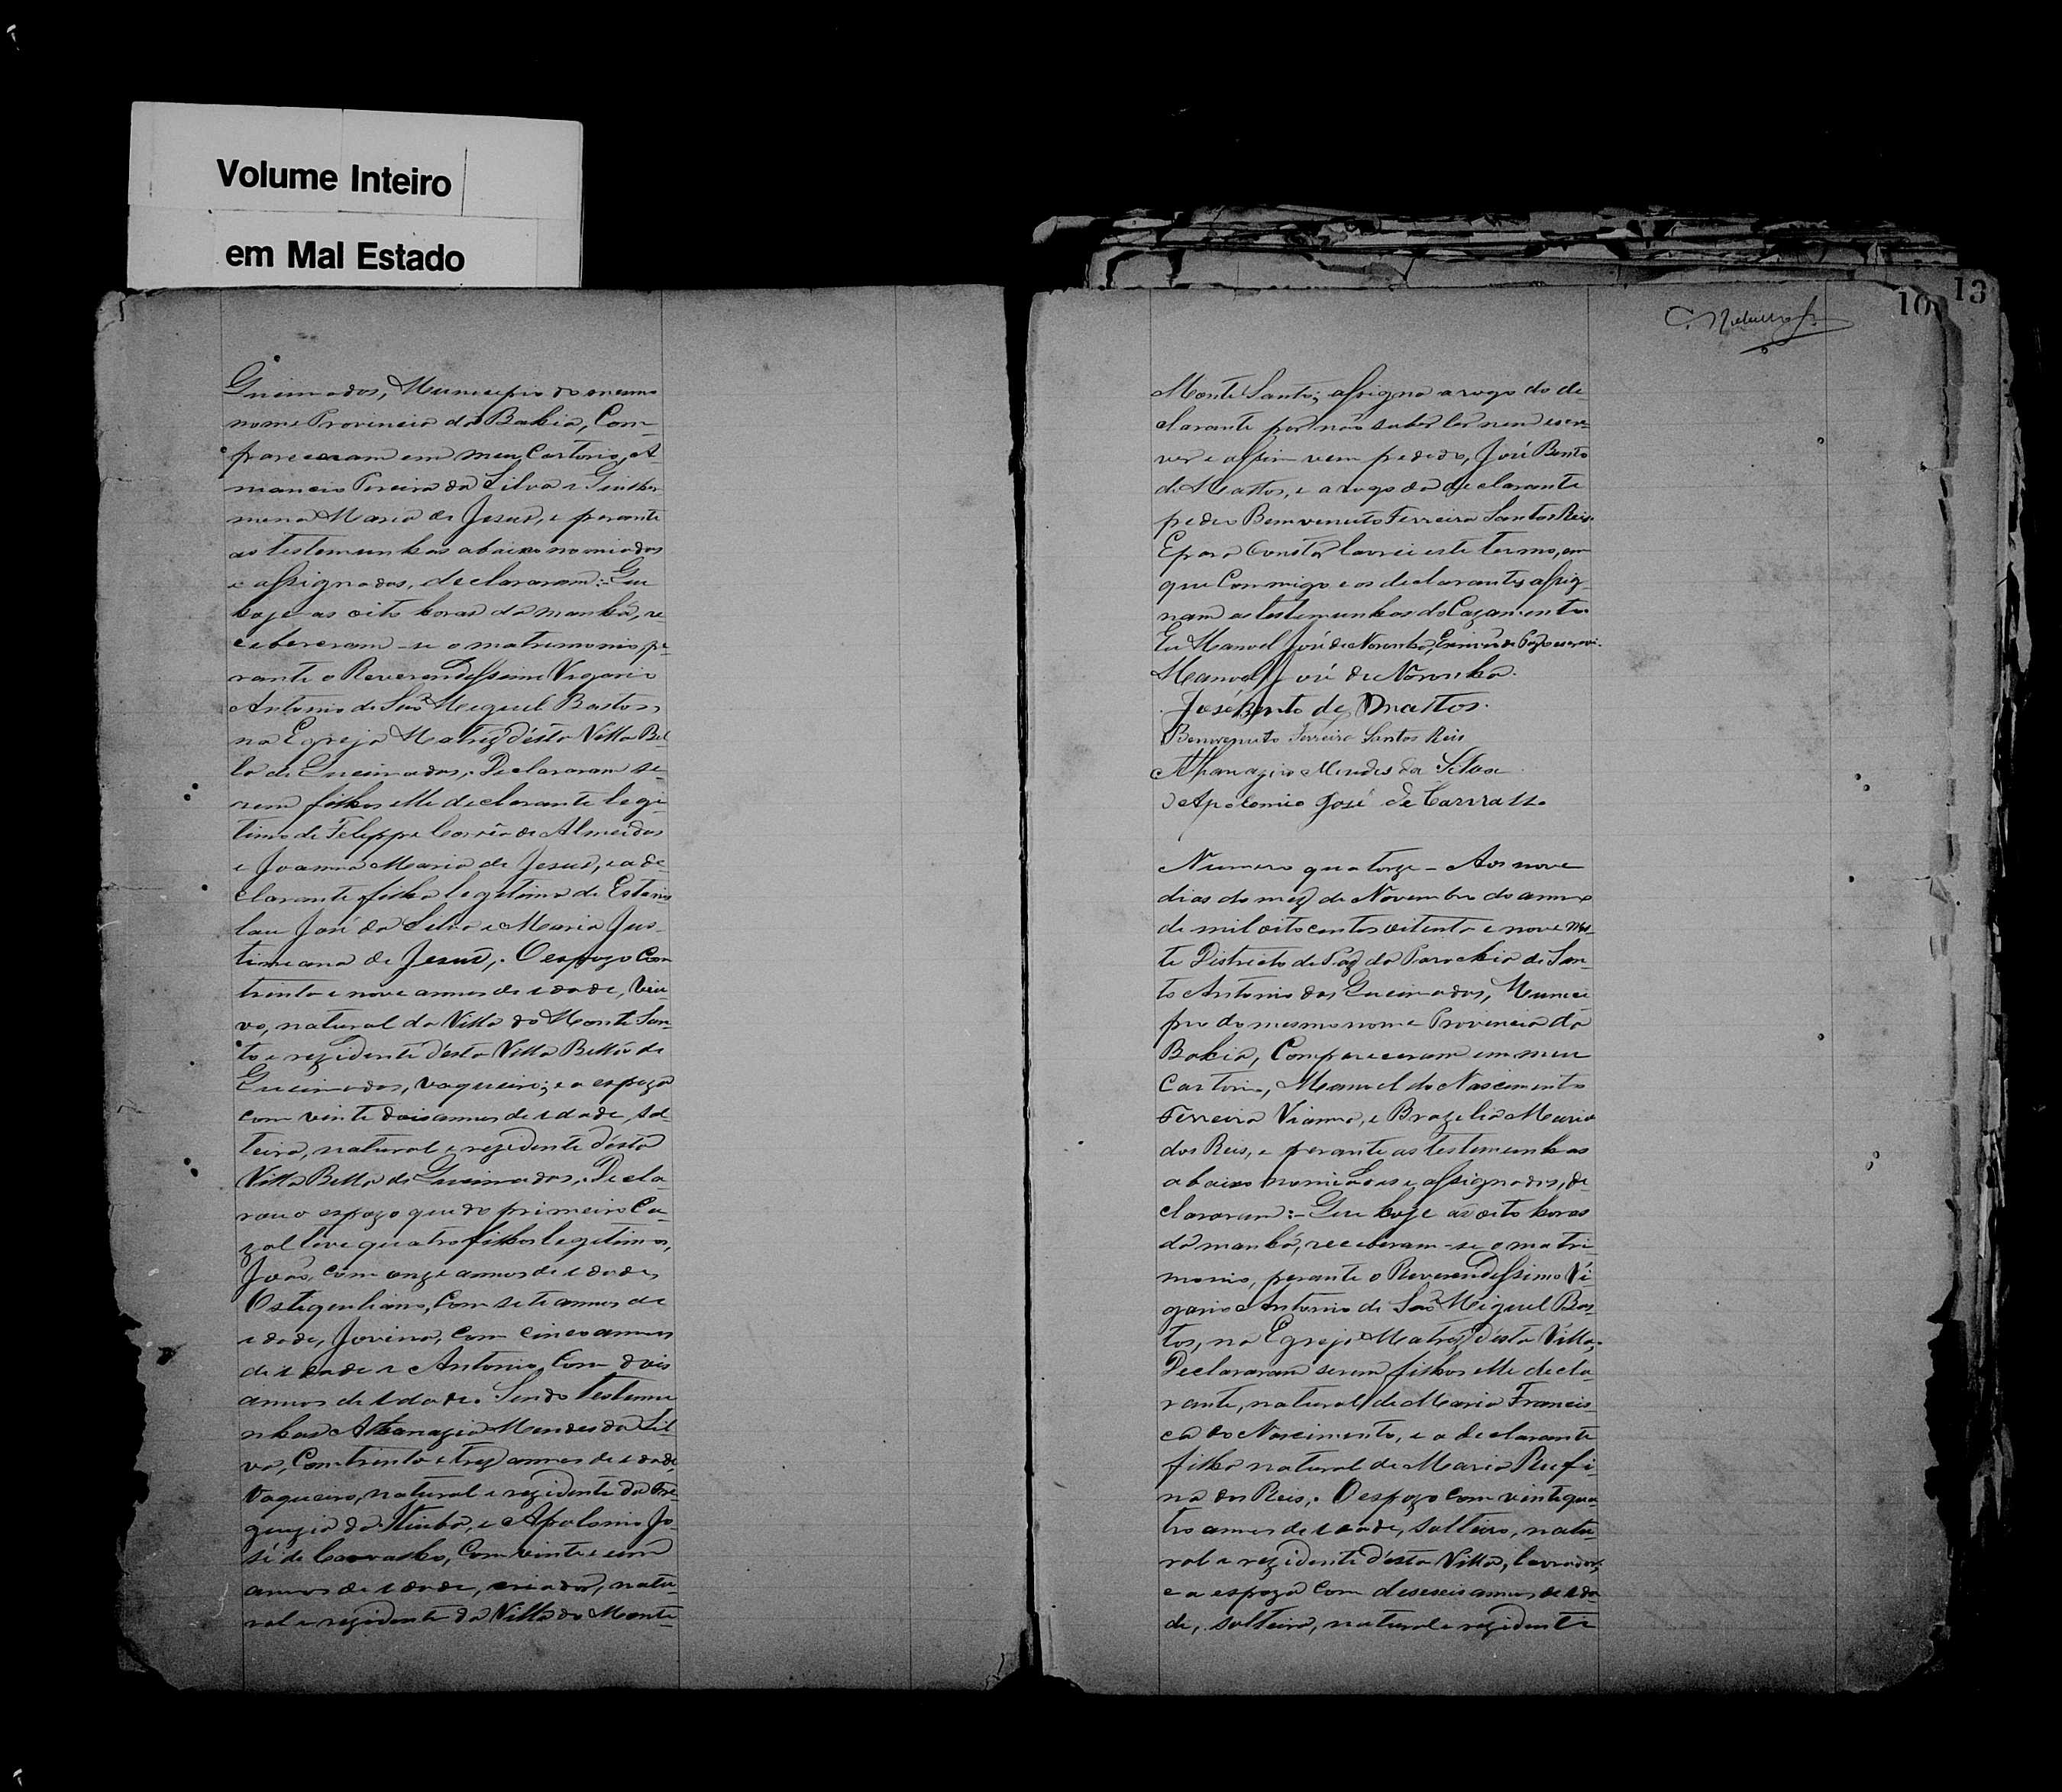 Volume Inteiro
em Mal Estado
Queimados, Municipio do mesmo
nome Provincia da Bahia, Com-
pareceram em meu Cartorio, A-
mancio Pereira da Silva e Guilher
mena Maria de Jesus, e perante
as testemunhas abaixo nomiadas
e assignadas, declararam:- Que
hoje as oito horas da manhã, re
ceberam-se o matremonio pe-
rante o Reverendissimo Vigario
Antonio de São Miguel Bastos,
na Egreja Matriz désta Villa Bel
la de Queimados,. Declararam se-
rem filhos elle declarante legi
timo de Felippe Corrêa de Almeidas
e Joanna Maria de Jesus, e a de
clarante filha legitima de Estanis
lau José da Silva e Maria Jus-
tiniana de Jesus,. O espozo Com
trinta e nove annos de idade, Veu-
vo, natural da Villa do Monte San-
to e rezidente désta Villa Bella de
Queimados, vaqueiro; e a espoza
com vinte dois annos de idade, sol
teira, natural e rezidente désta
Villa Bella de Queimados,. Decla-
rou o espozo que do primeiro Ca-
zal teve quatro filhos legitimos,
João, com onze annos de idade,
com sete annos de
idade, Jovina, com cinco annos
de idade e Antonio, Com dois
annos de idade. Sendo testemu
nhas Athanazio Mendes da Sil-
va, Com trinta e trez annos de idade,
Vaqueiro, natural e rezidente da Fre-
guezia do Itiuba, e Apolonio Jo-
sé de Carvalho, Com vinte e um
annos de idade, criador, natu-
ral e rezidente da Villa do Monte
10 13
Monte Santo; assigna a rogo do de
clarante por não saber ler nem escre-
ver e assim vem pedido, José Bento
de Mattos, e a rogo da declarante
pedeo Bemvenuto Ferreira Santos Reis.
E para Constar lavrei este termo, em
que Commigo e os declarantes assig-
nam as testemunhas do Cazamento
Eu Manoel José de Noronha, Escrivão de Paz o escrevi.
Manoel José de Noronha.
José Bento de Mattos.
Bemvenuto Ferreira Santos Reis
Athanazio Mendes da Silva
Apolonio José de Carvalho
Numero quatorze - Aos nove
dias do mez de Novembro do anno
de mil oito centos oitenta e nove nes-
te Districto de Paz da Parochia de San-
to Antonio das Queimadas, Munici
pio do mesmo nome Provincia da
Bahia, Compareceram em meu
Cartorio, Manoel do Nascimento
Ferreira Vianna, e Brazelia Maria
dos Reis, e perante as testemunhas
abaixo nomiadas e assignados, de
clararam:- Que hoje as oito horas
da manhã, receberam-se o matri-
monio, perante o Reverendissimo Vi-
gario Antonio de São Miguel Bas-
tos, na Egreja Matriz désta Villa,
Declararam serem filhos elle decla-
rante, natural de Maria Francis-
ca do Nascimento, e a declarante
filha natural de Maria Rufi-
na dos Reis,. O espozo com vinte qua-
tro annos de idade, solteiro, natu-
ral e rezidente désta Villa, lavrador,
e a espoza com deseseis annos de ida-
de, solteira, natural e rezidente